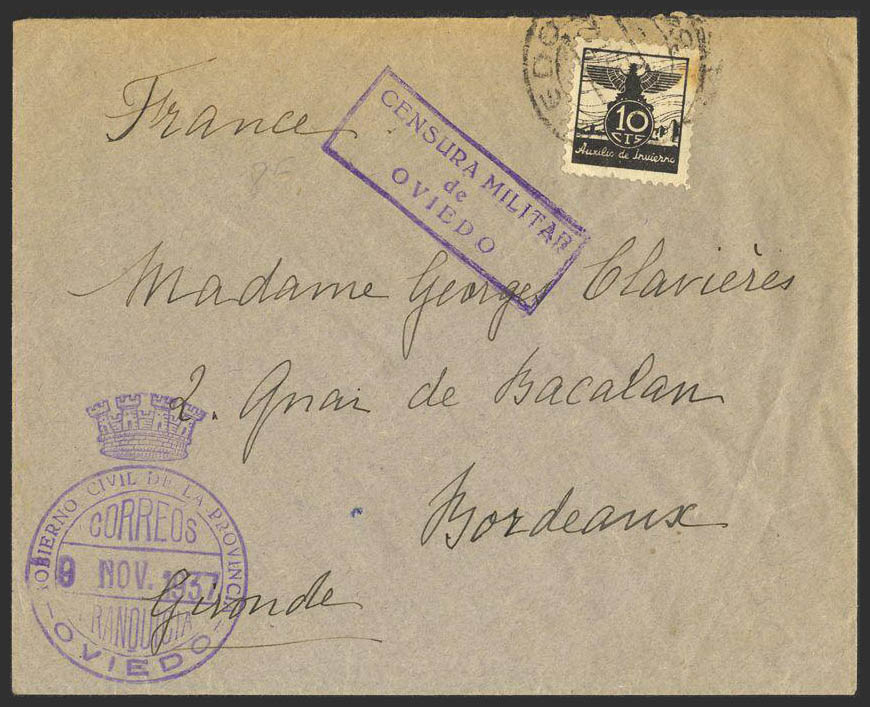 France
CENSURA MILITAR
de
OVIEDO
10
CTS
Auxilio de Invierno
Madame Georges Clavières
2. Quai de Bacalan
Bordeaux
Gironde
GOBIERNO CIVIL DE LA PROVINCIA
CORREOS
9 NOV. 1937
FRANQUICIA
OVIEDO